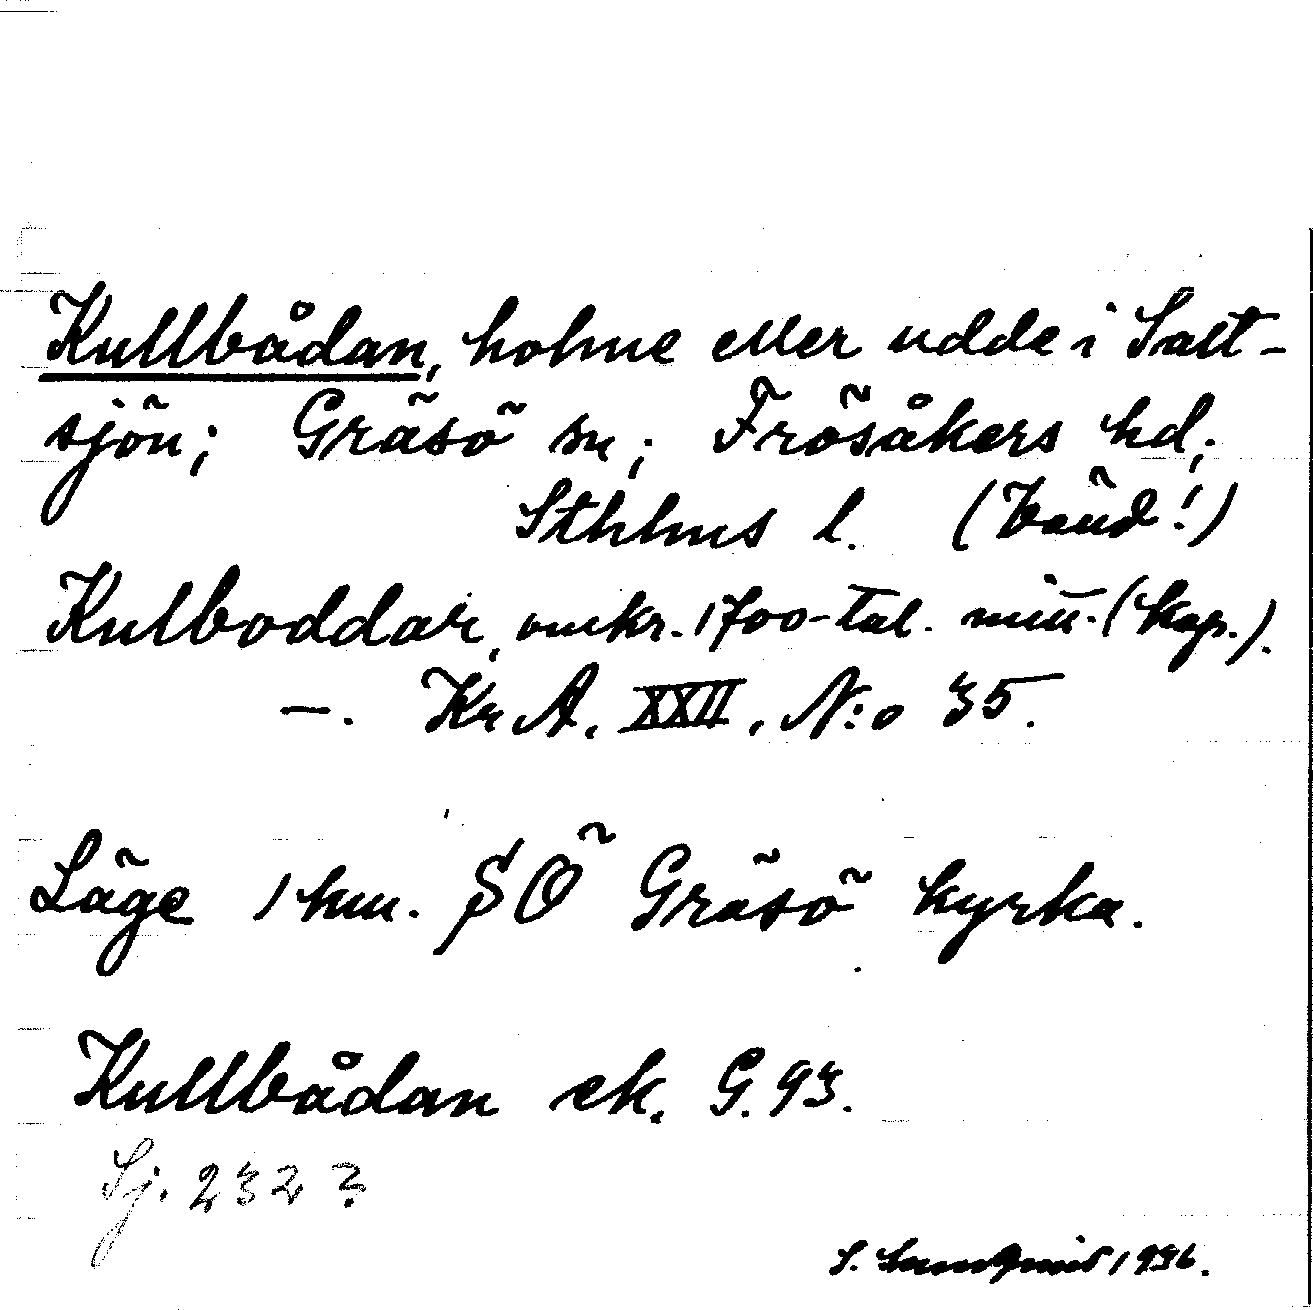 Kullbådan, holme eller udde i Salt-
sjön; Gräsö sn; Frösåkers hd;
Sthlms l. (Vänd!)
Kulboddar, omkr. 1700-tal. mitt. (Kop.).
—. Kr A. XXII, N:o 35.
Läge 1 km. SÖ Gräsö kyrka.
Kullbådan ek. G. 93.
Sj. 232 ?
S. 1936.